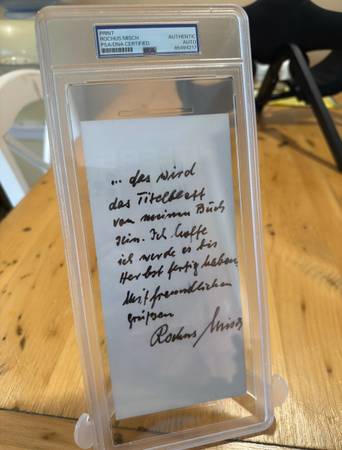 PRINT
ROCHUS MISCH
PSA/DNA CERTIFIED
AUTHENTIC
AUTO
85494217
... das wird
das Titelblatt
von meinem Buch
sein. Ich hoffe
ich werde es bis
Herbst fertig haben.
Mit freundlichen
Grüßen
Rochus Misch